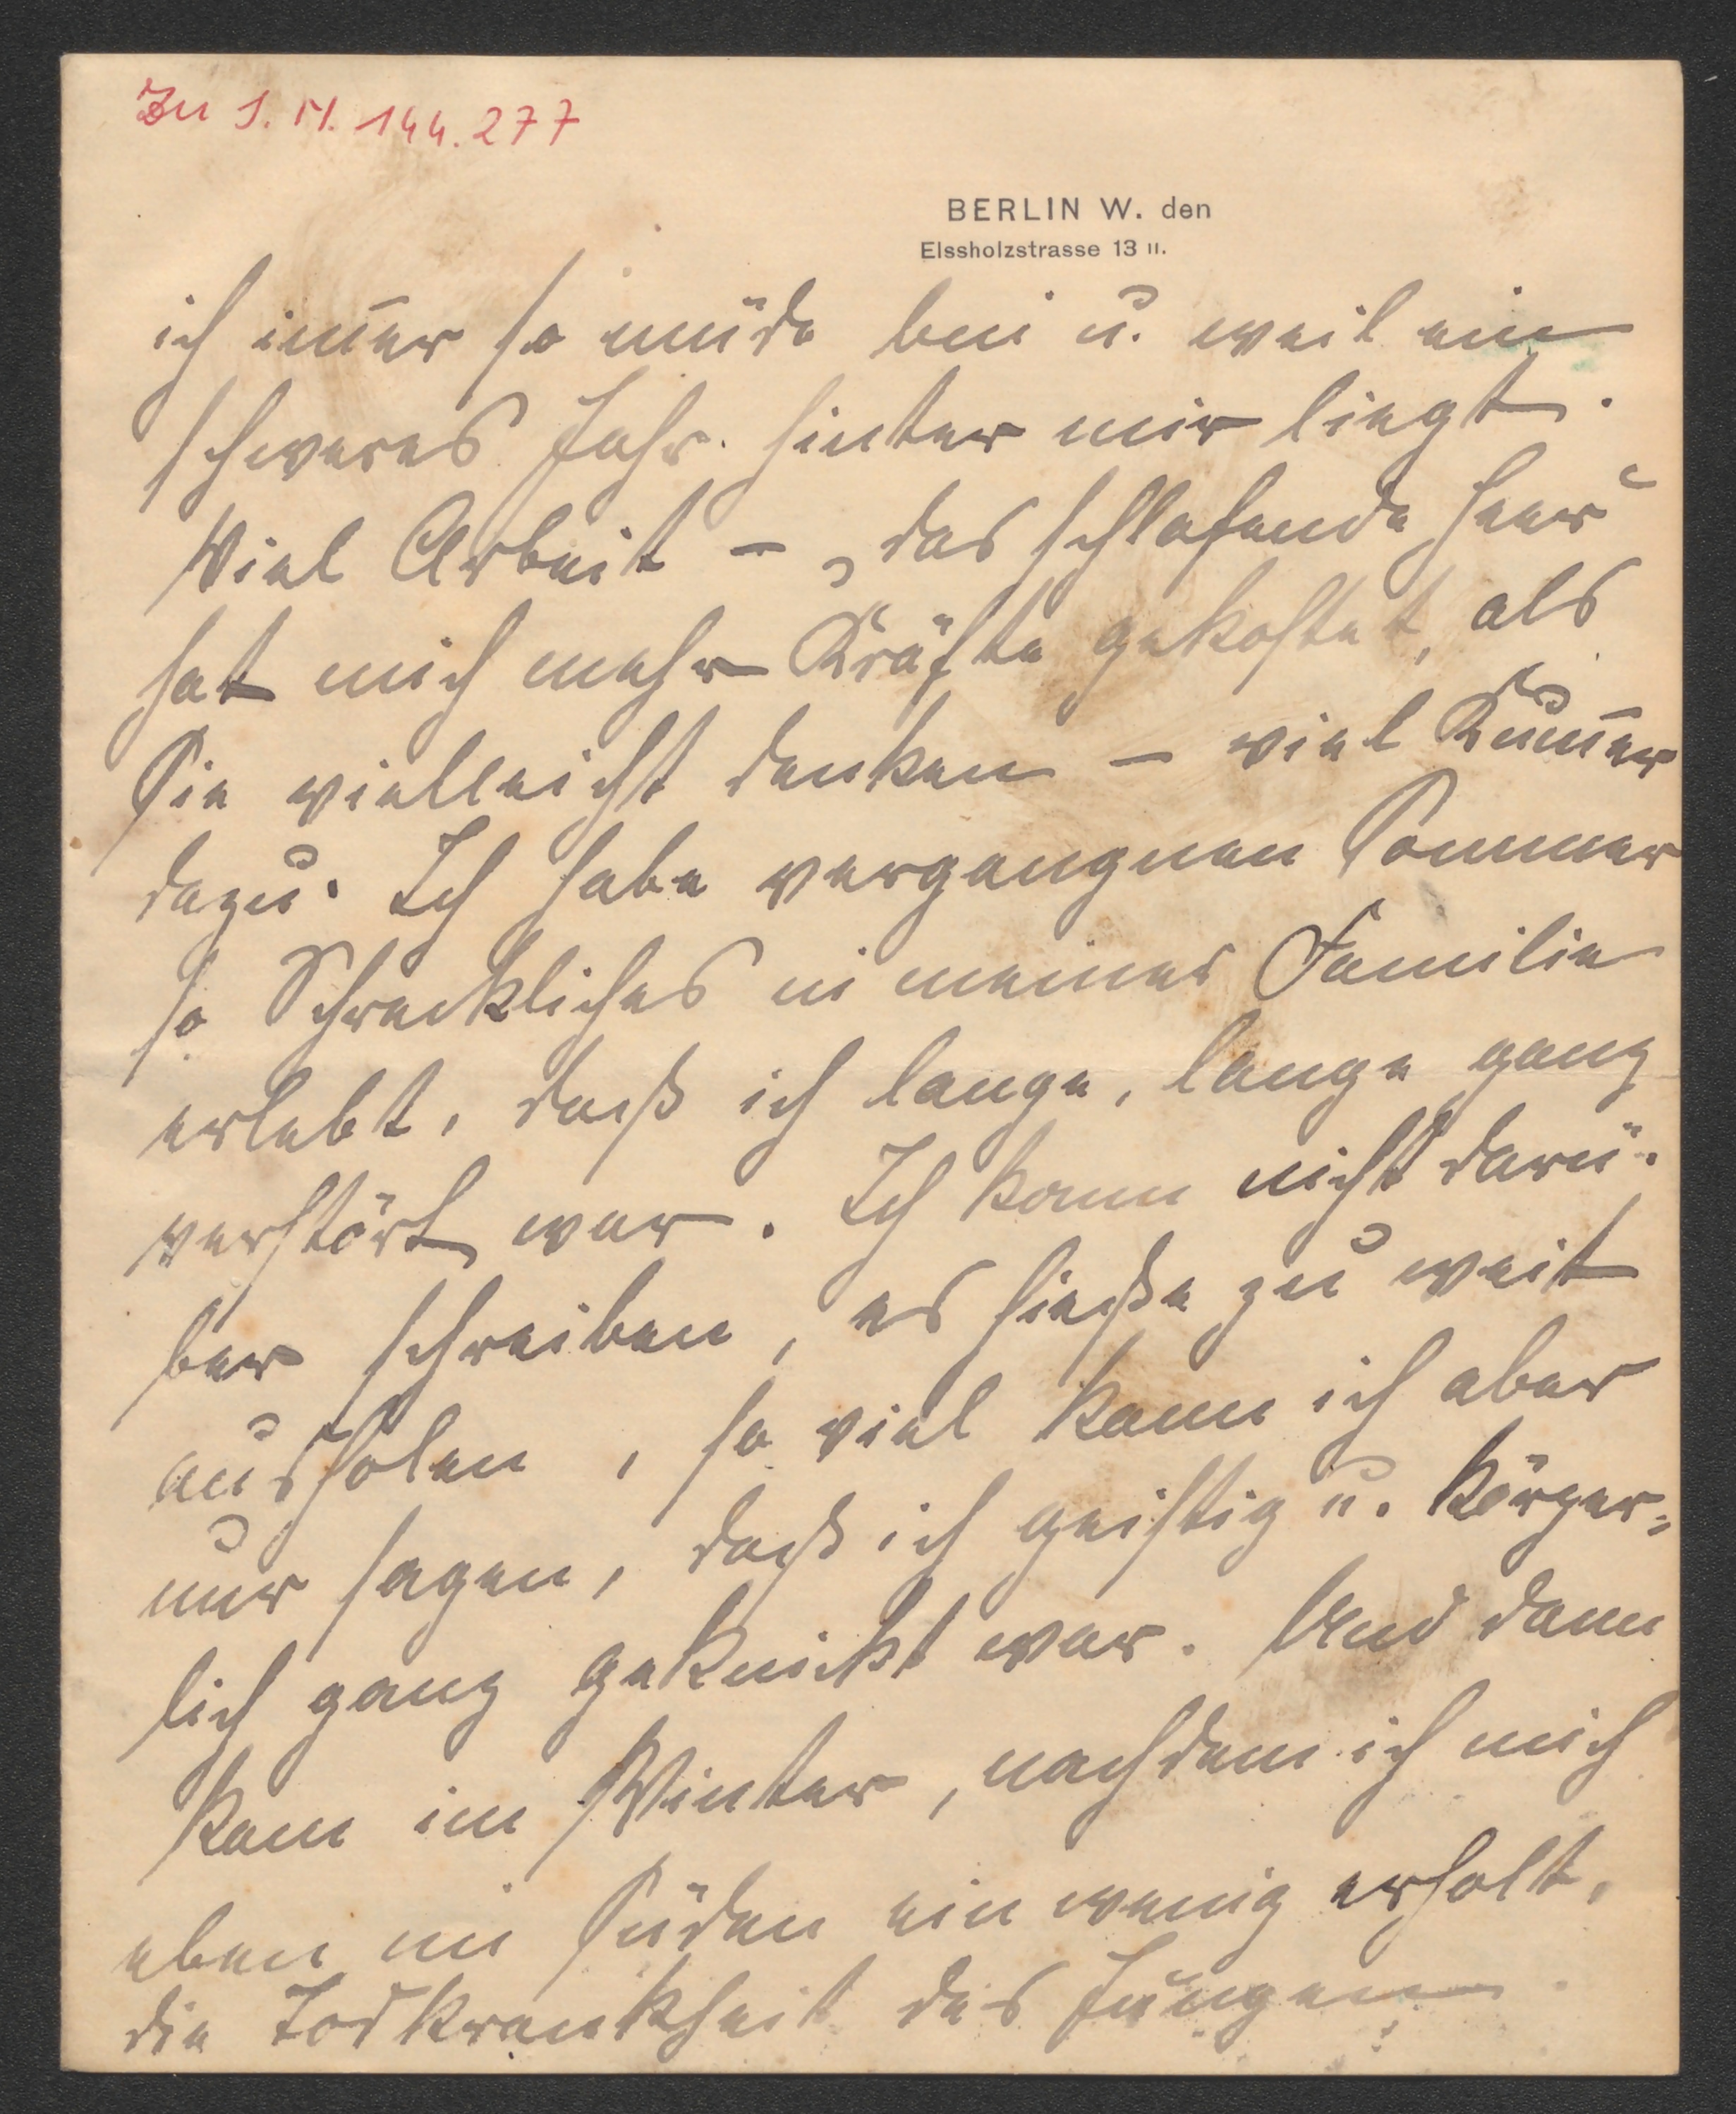 Zu I. N. 144.277
BERLIN W. den
Elssholzstrasse 13 II.
ich im̄er so müde bin u. weil ein
schweres Jahr hinter mir liegt.
Viel Arbeit – „das schlafende Heer“
hat mich mehr Kräfte gekostet, als
Sie vielleicht denken – viel Kum̄er
dazu. Ich habe vergangnen Sommer
so Schreckliches in meiner Familie
erlebt, daß ich lange, lange ganz
verstört war. Ich kann nicht darü-
ber schreiben, es hieße zu weit
ausholen, so viel kann ich aber
nur sagen, daß ich geistig u. körper-
lich ganz geknickt war. Und dann
kam im Winter, nachdem ich mich
eben im Süden ein wenig erholt,
die Todkrankheit des Jungen.